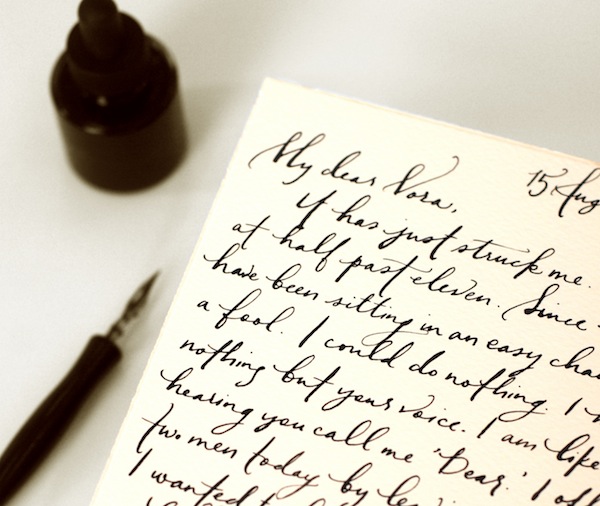 15 Aug
My dear Nora,
It has just struck me.
at half past eleven. Since
have been sitting in an easy chai
a fool. I could do nothing. I
nothing but your voice. I am like
hearing you call me 'Dear.' I off
two men today by
I wanted to